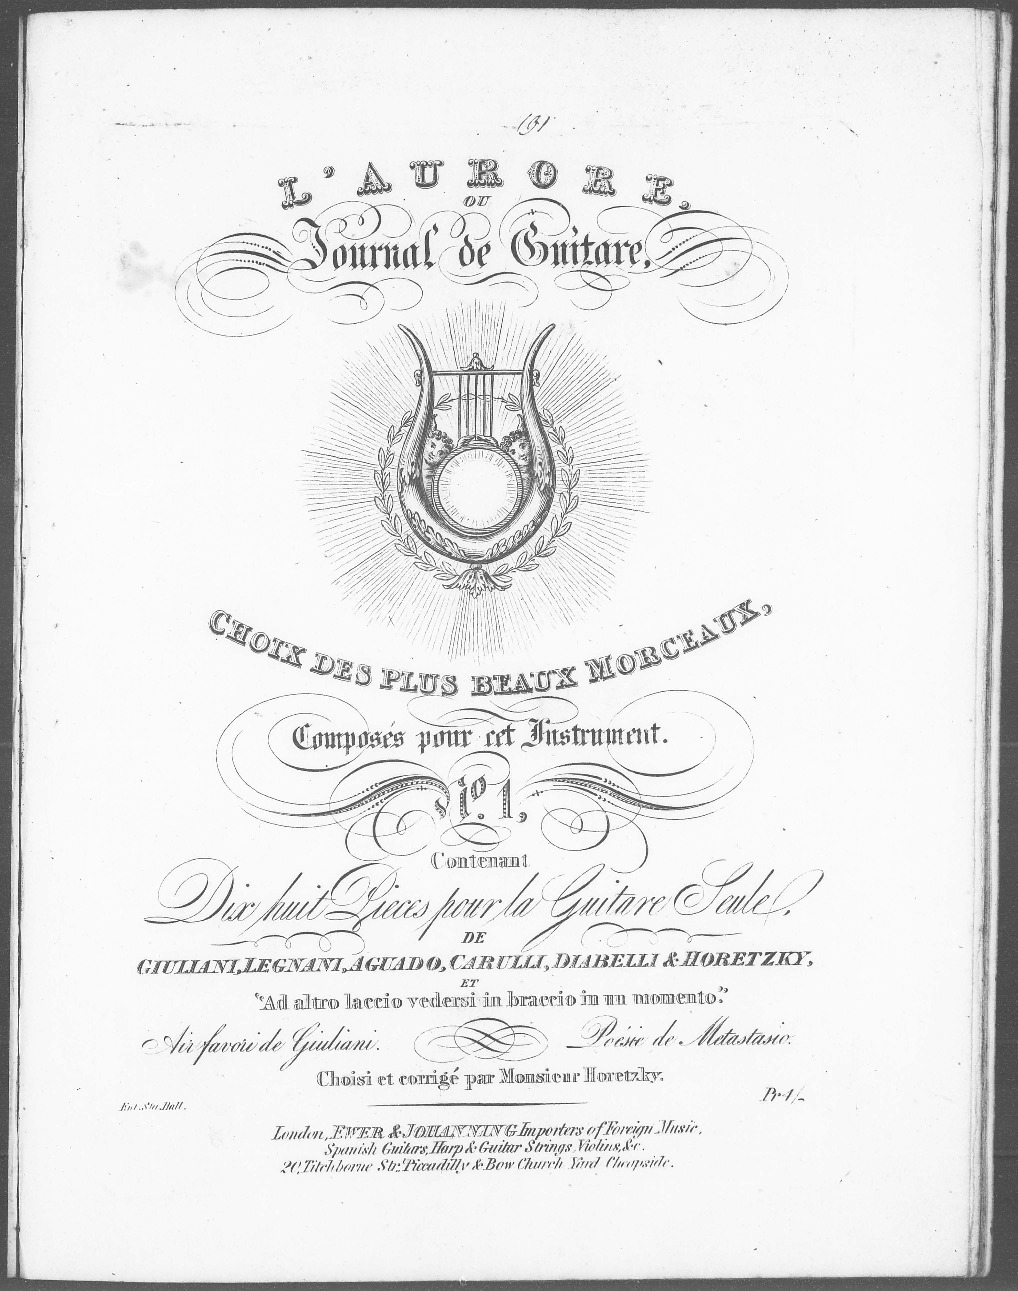 131
L'AURORE,
OU
Journal de Guitare,
CHOIX DES PLUS BEAUX MORCEAUX,
Composés pour cet Instrument.
No. 1,
Contenant
Dix huit Pieces pour la Guitare Seule.
DE
GIULIANI, LEGNANI, AGUADO, CARULLI, DIABELLI & HORETZKY,
ET
"Ad altro laccio vedersi in braccio in un momento."
Air favori de Giuliani. Poésie de Metastasio.
Choisi et corrigé par Monsieur Horetzky.
Ent. Sta. Hall. Pr 4/-
London, EWER & JOHANNING Importers of Foreign Music,
Spanish Guitars, Harp & Guitar Strings, Violins, &c.
20, Titchborne Str. Piccadilly & Bow Church Yard Cheapside.